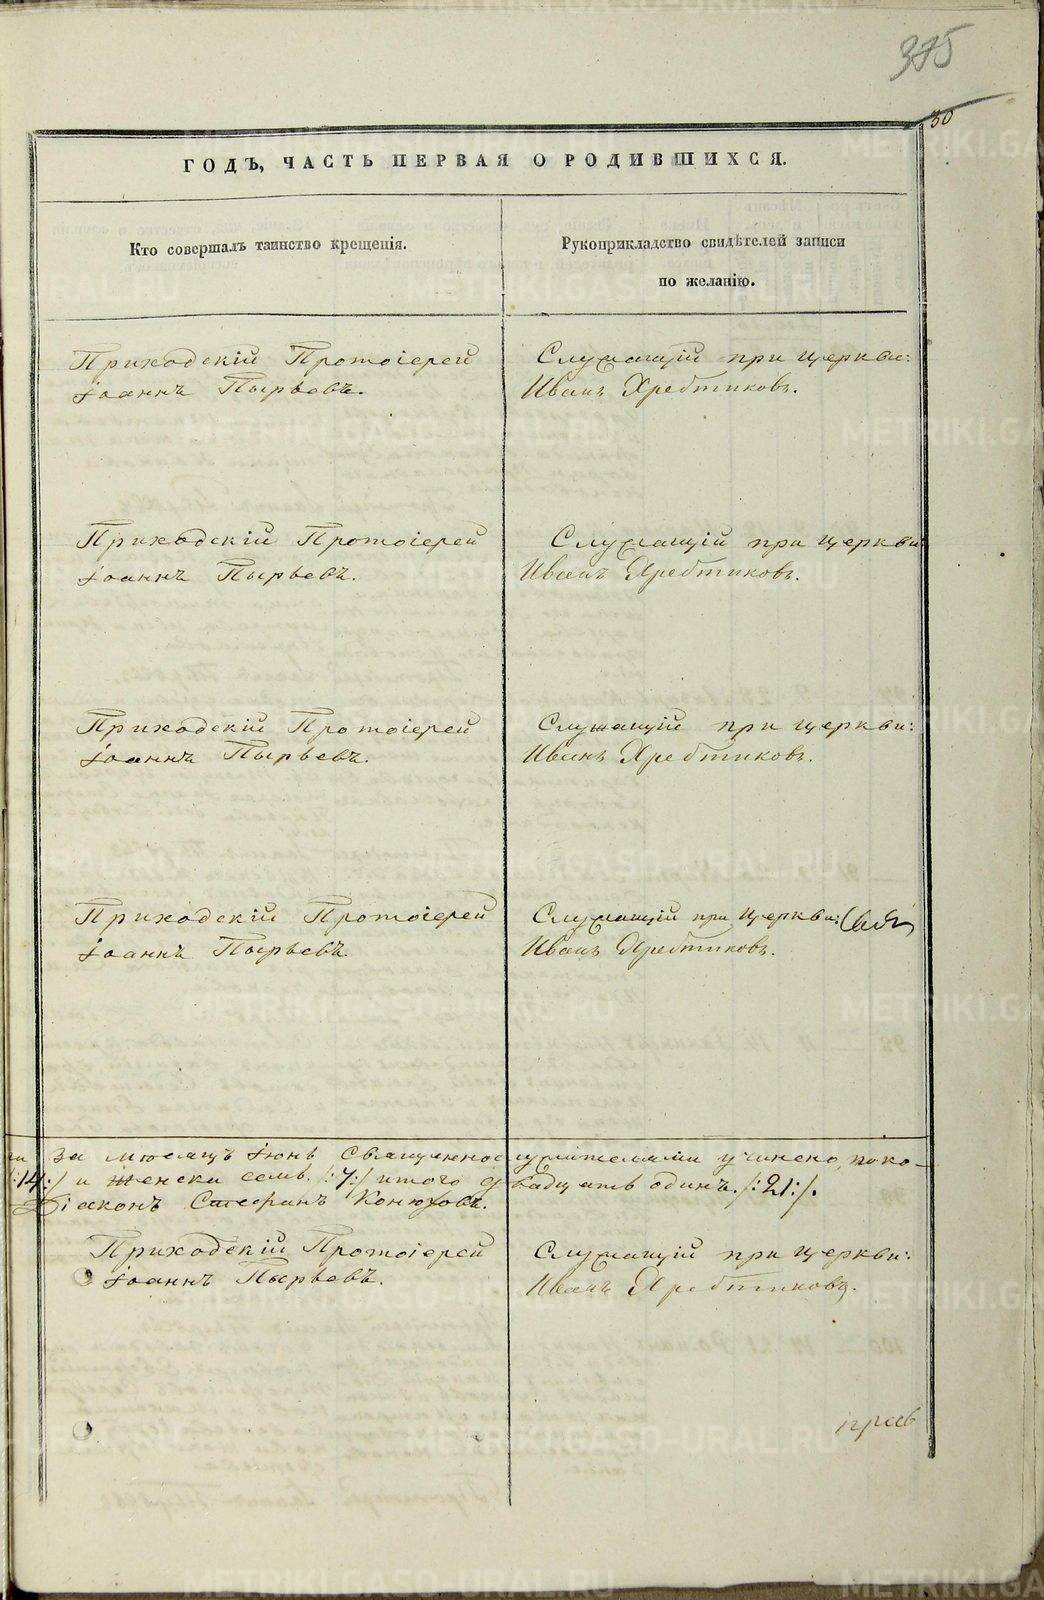 375
30
ГОДЪ, ЧАСТЬ ПЕРВАЯ О РОДИВШИХСЯ.
Кто совершалъ таинство крещенія.
Рукоприкладство свидѣтелей записи
по желанію.
Приходскій Протоіерей
Іоаннъ Пырьевъ.
Служащій при церкви:
Иванъ Хребтиковъ.
Приходскій Протоіерей
Іоаннъ Пырьевъ.
Служащій при церкви
Иванъ Хребтиковъ.
Приходскій Протоіерей
Іоаннъ Пырьевъ.
Служащій при церкви:
Иванъ Хребтиковъ.
Приходскій Протоіерей
Іоаннъ Пырьевъ.
Служащій при церкви:
Иванъ Хребтиковъ.
за мѣсяцъ Іюнь Священнослужителями учинено, поко-
/:14:/ и женска семь /:7:/ итого двадцать одинъ /:21:/.
Діаконъ Стефанъ Конюховъ.
Приходскій Протоіерей
Іоаннъ Пырьевъ.
Служащій при церкви:
Иванъ Хребтиковъ.
METRIKI.GASO-URAL.RU